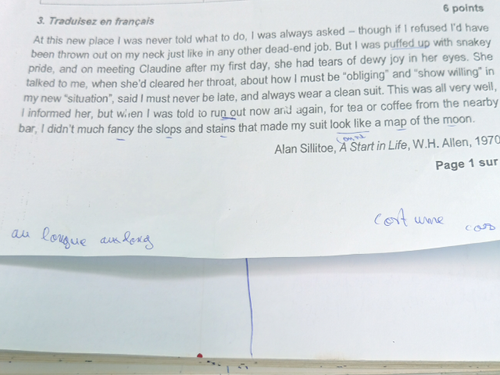 6 points
3. Traduisez en français
At this new place I was never told what to do, I was always asked – though if I refused I'd have
been thrown out on my neck just like in any other dead-end job. But I was puffed up with snakey
pride, and on meeting Claudine after my first day, she had tears of dewy joy in her eyes. She
talked to me, when she'd cleared her throat, about how I must be "obliging" and "show willing" in
my new "situation", said I must never be late, and always wear a clean suit. This was all very well,
I informed her, but when I was told to run out now and again, for tea or coffee from the nearby
bar, I didn't much fancy the slops and stains that made my suit look like a map of the moon.
Alan Sillitoe, A Start in Life, W.H. Allen, 1970
Page 1 sur
au longue
costume